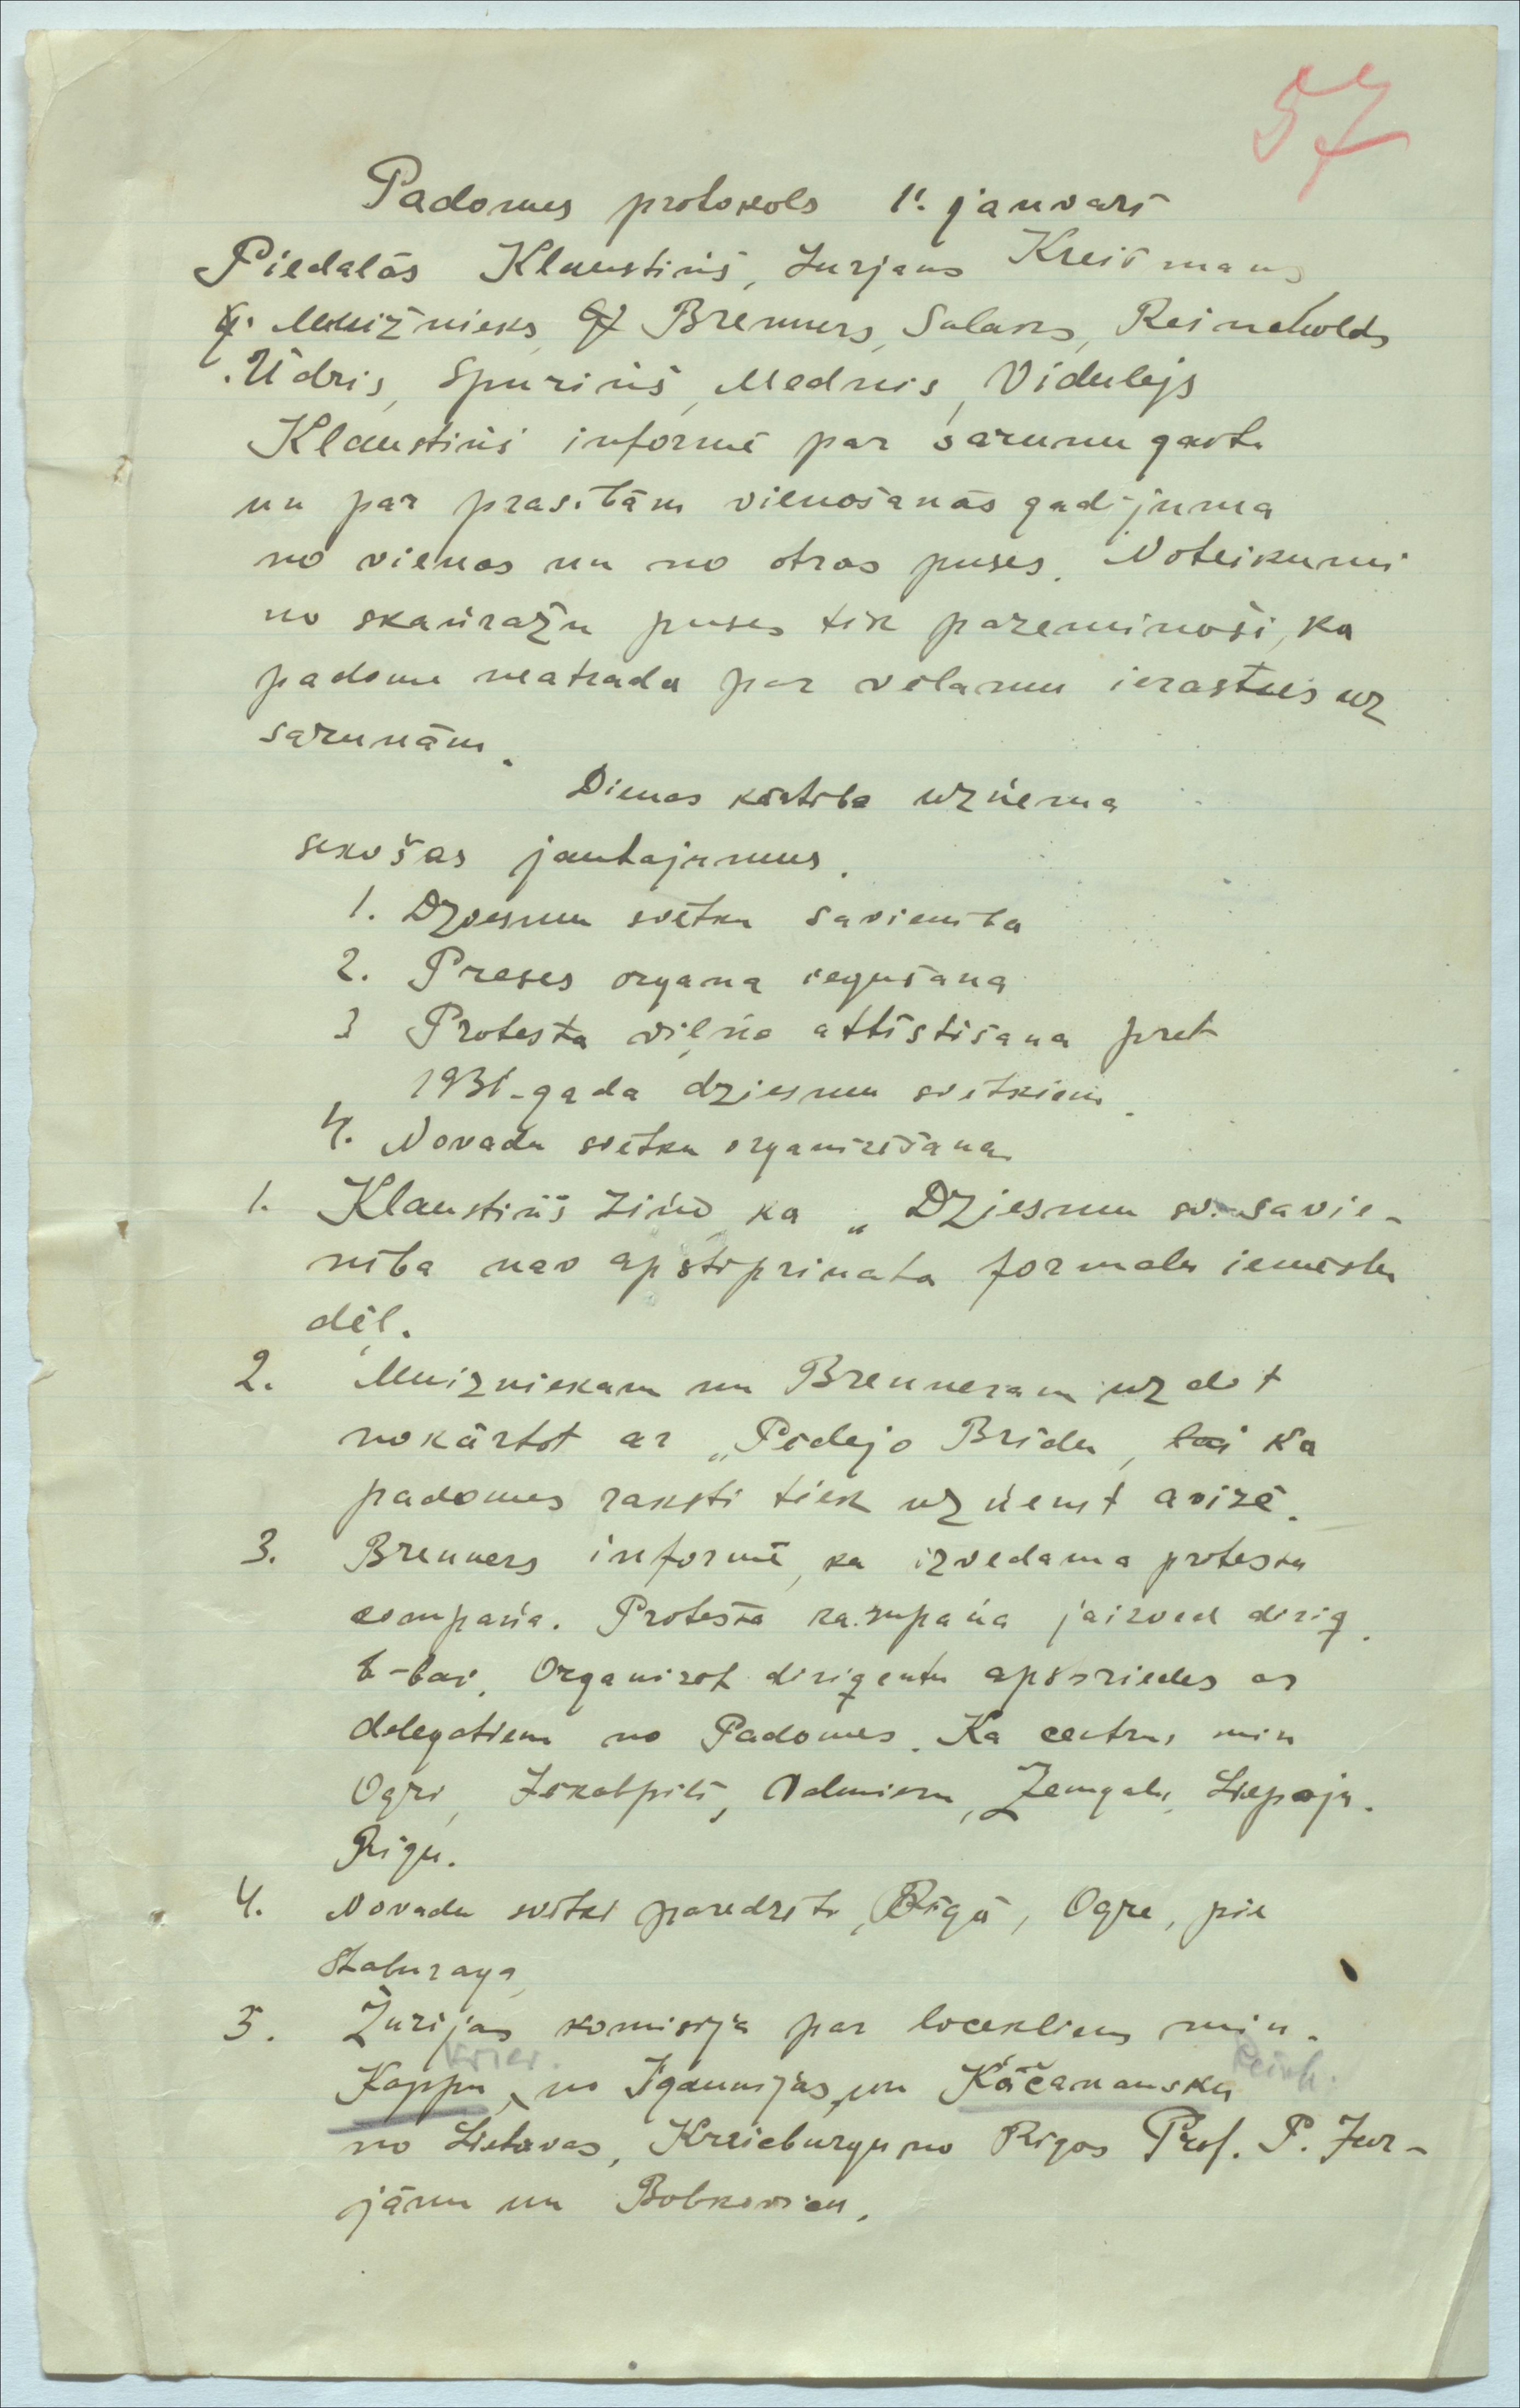 57
Padomes protokols 1. janvarī
Piedalās Klaustiņš, Jurjans Kreišmans
Muižnieks, Brenners, Salaks, Reinholds
Ūdris, Spuriņš, Mednis, Vidulejs
Klaustiņš informē par sarunu gaitu
un par prasībām vienošanās gadījuma
no vienas un no otras puses. Noteikumi
no skaņražu puses tik pazeminoši, ka
padome neatrada par vēlamu ierasties uz
sarunām.
Dienas kārtība uzņema
sekošas jautajumus.
1. Dziesmu svētku savienība
2. Preses organa iegušana
3 Protesta viļņa attīstīšana pret
1931-gada dziesmu svētkiem.
4. Novadu svētku organizēšana
1. Klaustiņš ziņo, ka „Dziesmu sv. savie-
nība nav apstiprinata formalu iemeslu
dēļ.
2. Muizniekam un Brenneram uzdot
nokārtot ar „Pēdejo Brīdu, lai ka
padomes raksti tiek uzņemt avizē.
3. Brenners informē, ka izvedama protesta
compaņa. Protesta kampaņa jaizved dirig.
b-bai. Organizet dirigentu apspriedes ar
delegatiem no Padomes. Ka centrus min
Ogri, Jēkabpili, Valmieru, Zemgali, Liepaju.
Rigu.
4. Novadu svētki paredzēti Rīgā, Ogre, pie
Staburaga
5. Žurijas komisija par locekliem min.
Kappu, no Igaunijas, un Kačanausku
no Lietavas, Kreicburgu no Rigas Prof. P. Jur-
jānu un Bobkovicu.